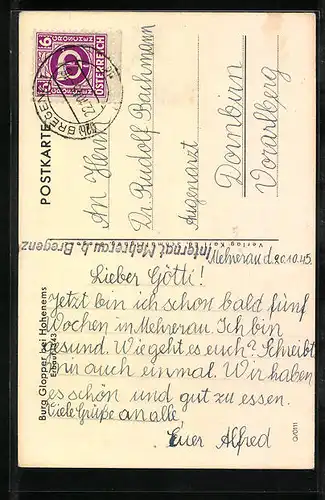 POSTKARTE
6 GROSCHEN 6
ÖSTERREICH
BREGENZ
An Herrn
Dr. Rudolf Bachmann
Augenarzt
Dornbirn
Vorarlberg
Internat Mehrerau b. Bregenz
Mehrerau d. 20.10.45.
Lieber Götti!
Jetzt bin ich schon bald fünf
Wochen in Mehrerau. Ich bin
gesund. Wie geht es euch? Schreibt
mir auch einmal. Wir haben
es schön und gut zu essen.
Viele Grüße an alle
Euer Alfred
Burg Glopper bei Hohenems
Erbaut 1343